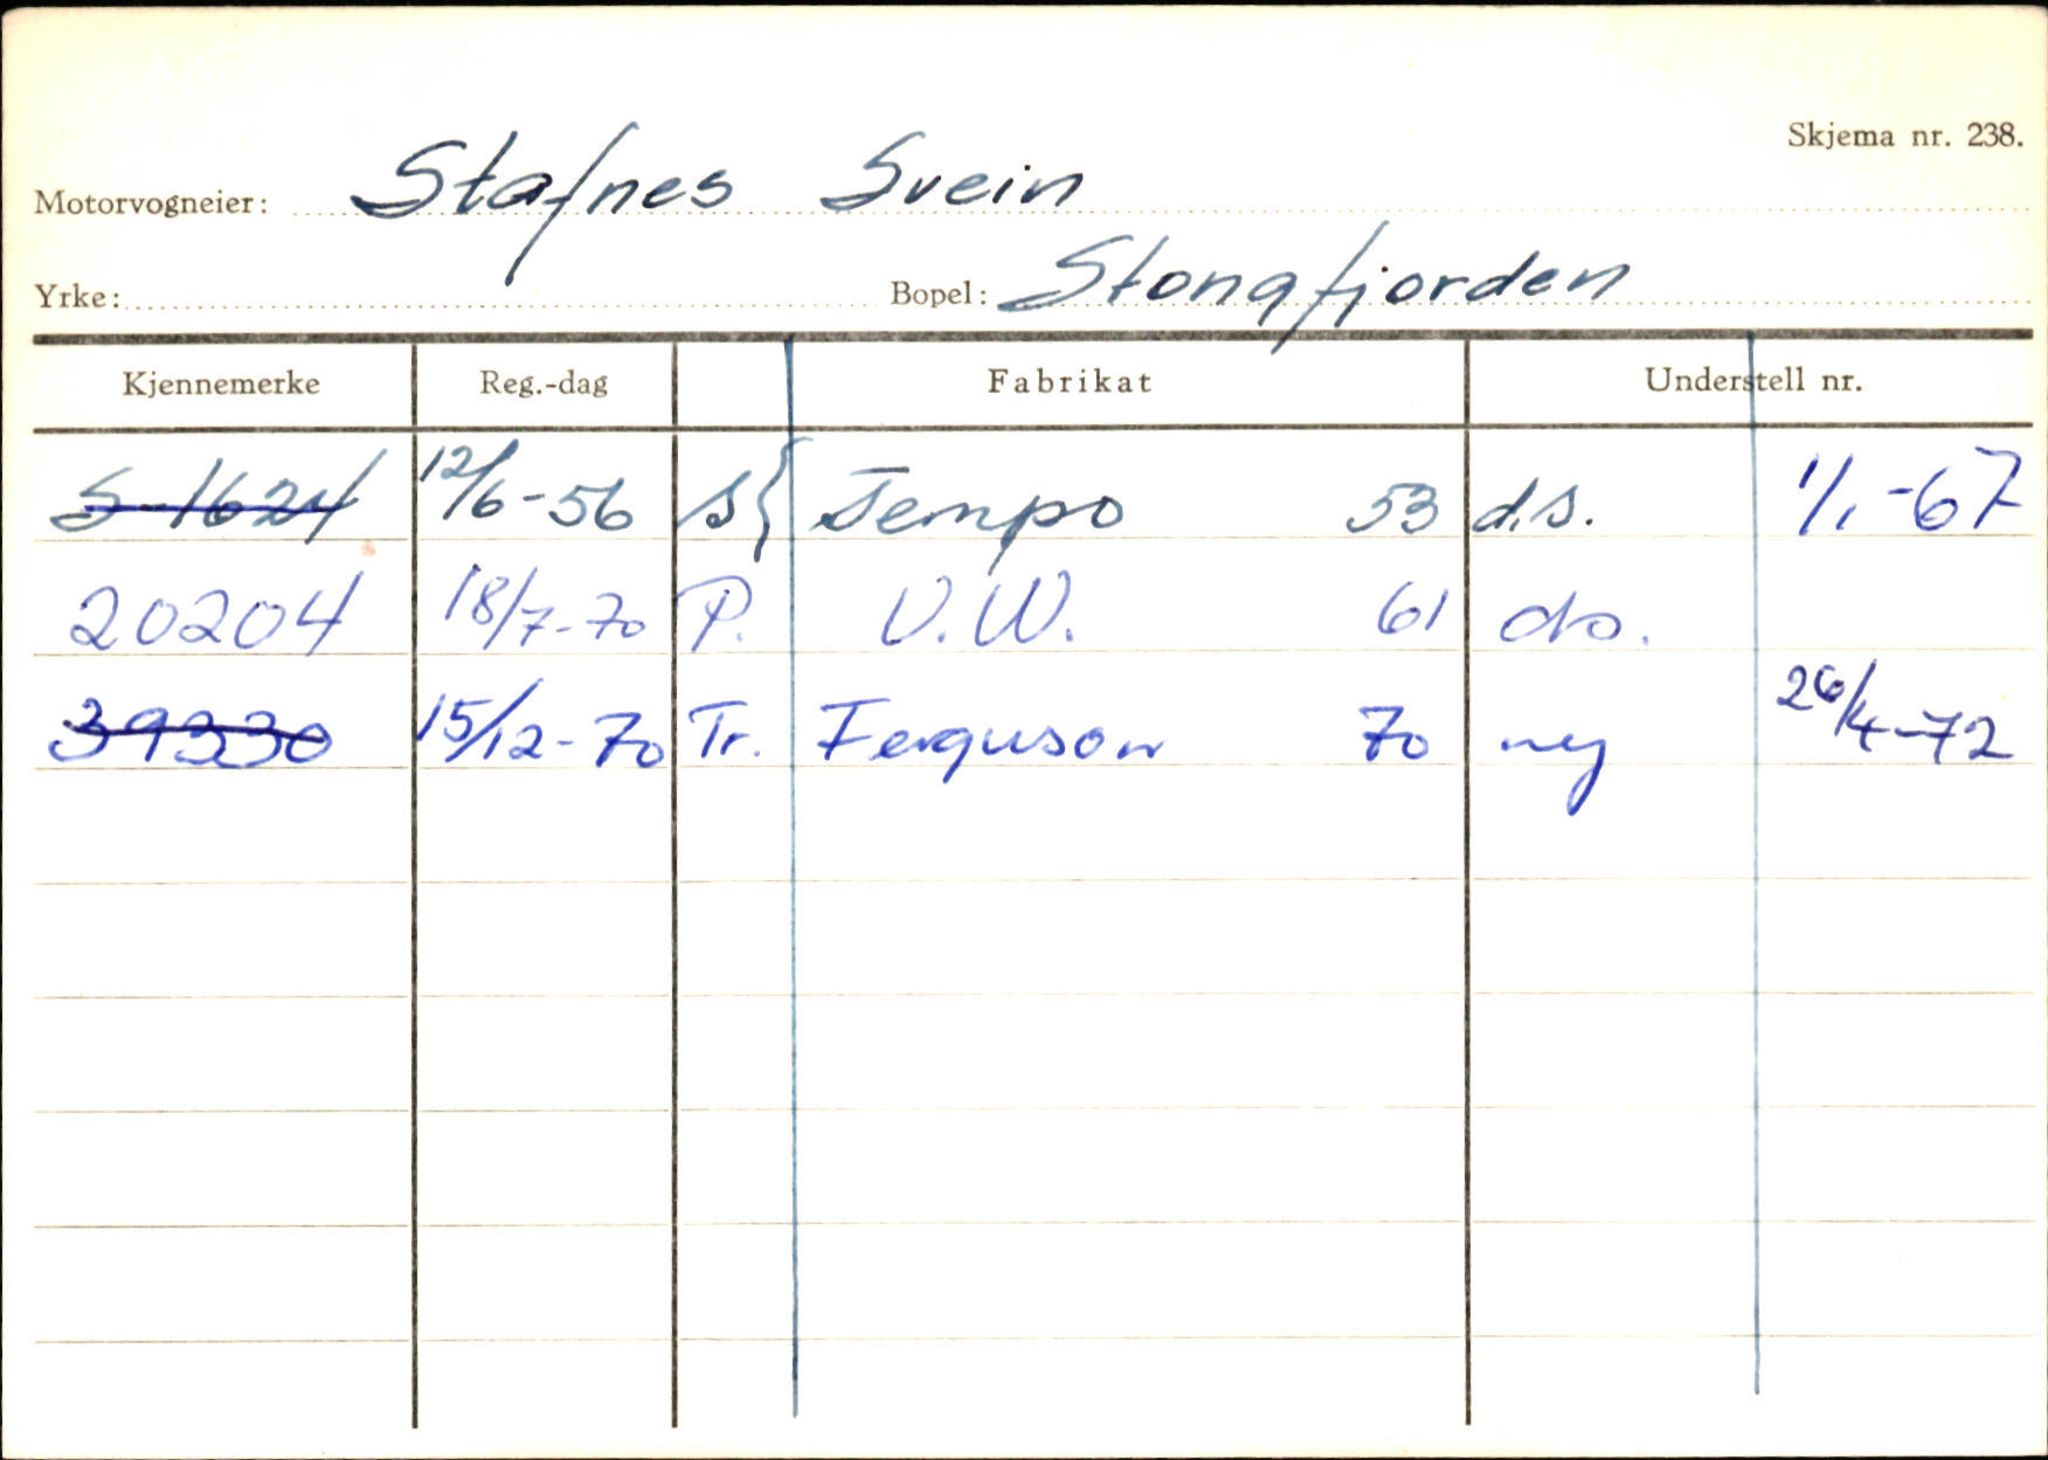 Skjema nr. 238.
Motorvogneier: Stafnes Svein
Yrke: Bopel: Stongfjorden
Kjennemerke Reg.-dag Fabrikat Understell nr.
S-1624 12/6-56 S{ Tempo 53 d.s. 1/1-67
20204 18/7-70 P. V.W. 61 ds.
39330 15/12-70 Tr. Ferguson 70 ny 26/4-72